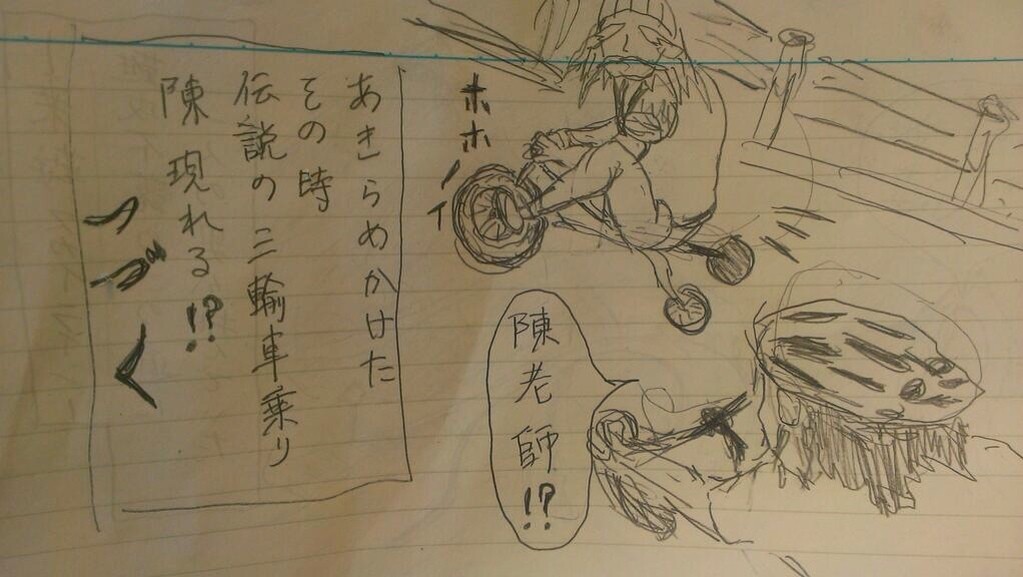 ホホーイ
陳老師!?
あきらめかけた
その時
伝説の三輪車乗り
陳 現れる!?
つづく